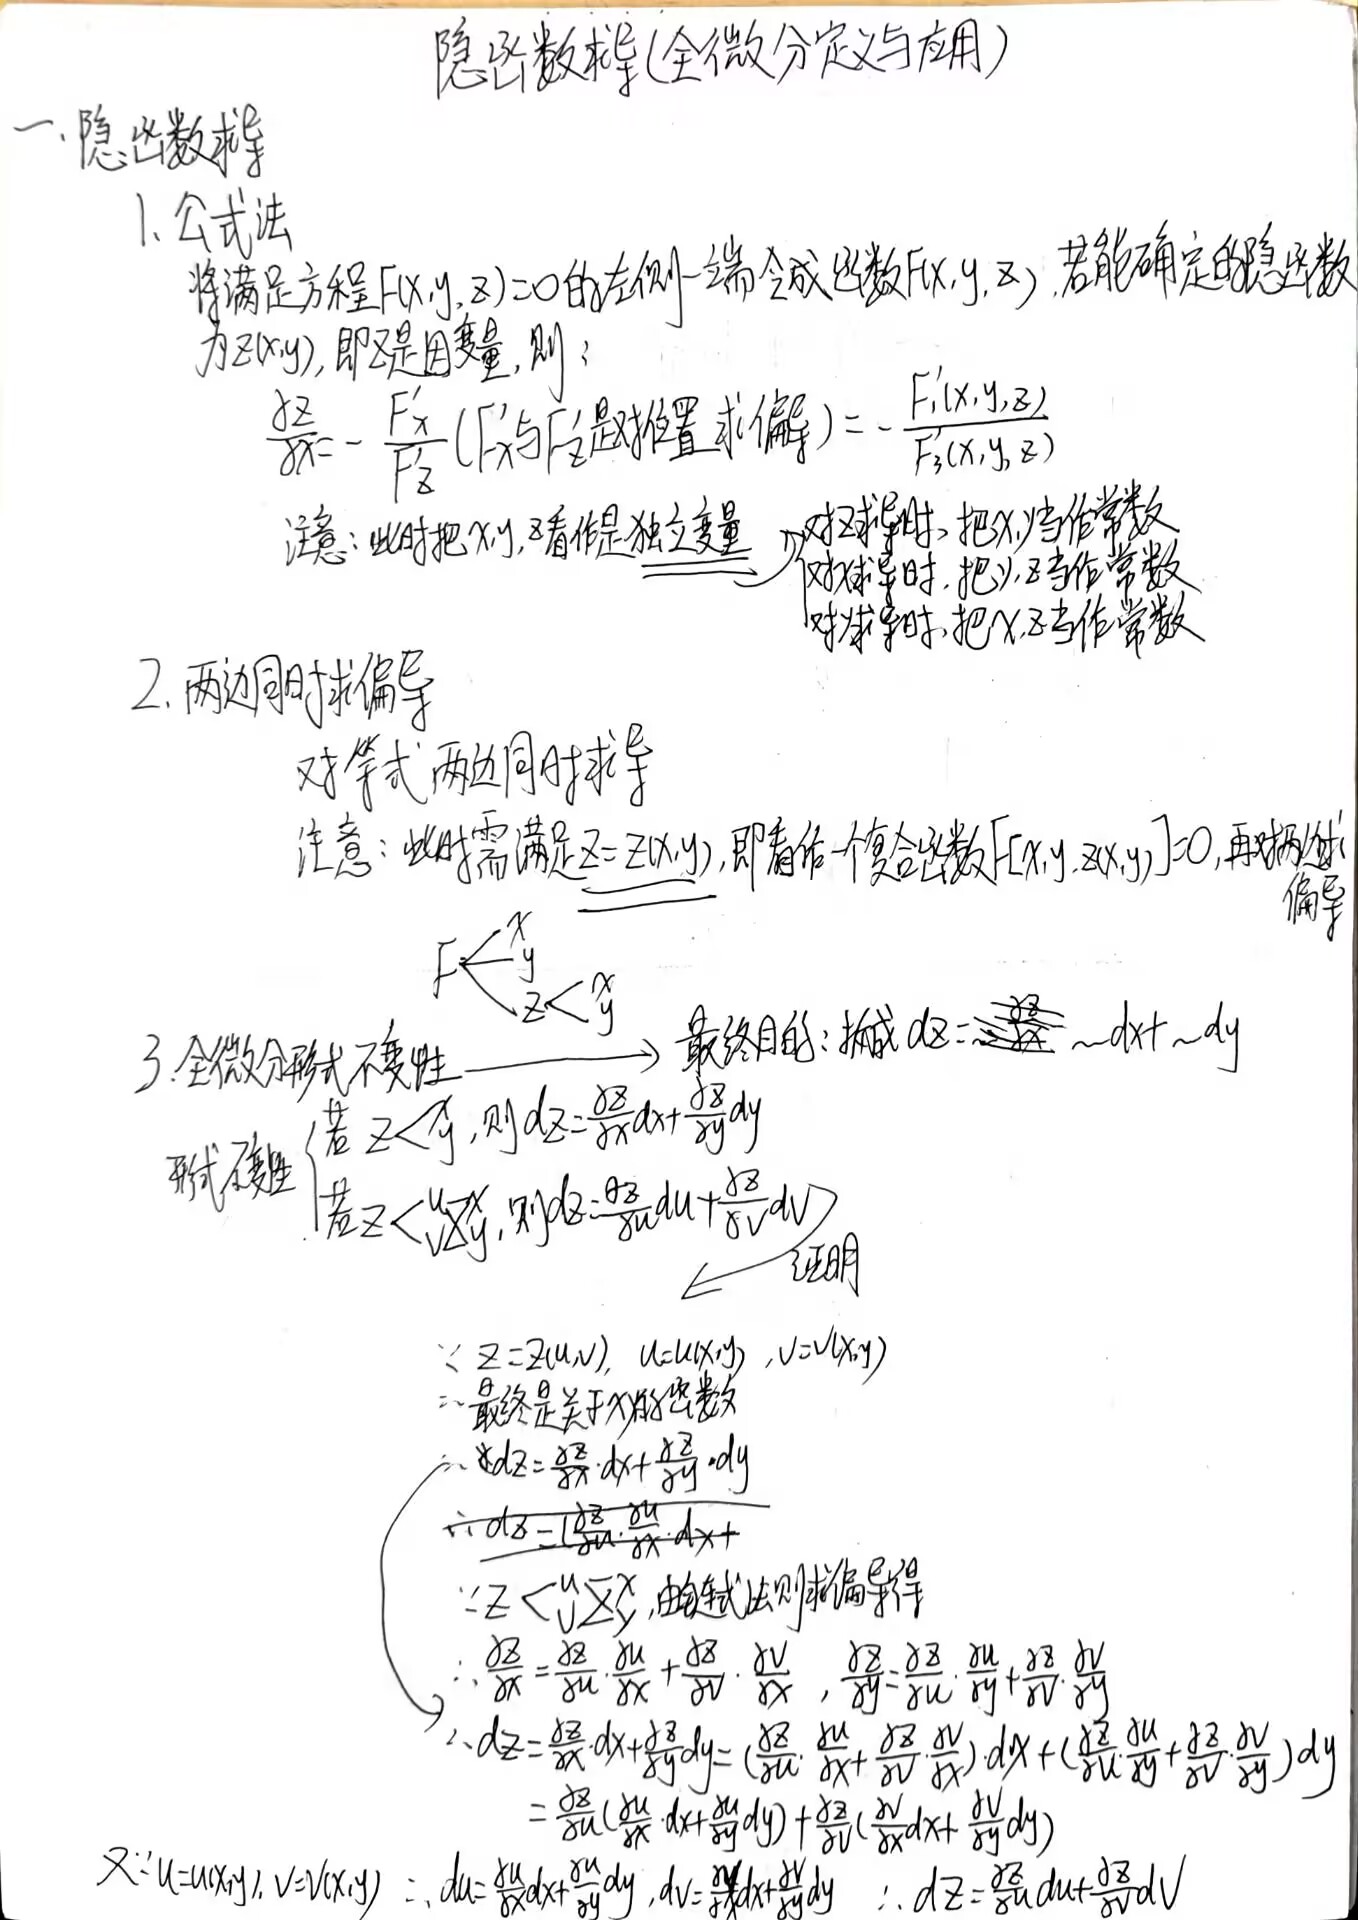 隐函数求导(全微分定义与应用)
一、隐函数求导
1、公式法
将满足方程F(x,y,z)=0的左侧一端令成函数F(x,y,z),若能确定的隐函数
为z(x,y),即z是因变量,则:
∂z/∂x=-F'x/F'z(F'x与F'z是对位置求偏导)=-F'₁(x,y,z)/F'₃(x,y,z)
注意:此时把x,y,z看作是独立变量
对z求导时,把x,y当作常数
对x求导时,把y,z当作常数
对y求导时,把x,z当作常数
2、两边同时求偏导
对等式两边同时求导
注意:此时需满足z=z(x,y),即看作一个复合函数F[x,y,z(x,y)]=0,再对两边求
偏导
F<x
y
z<x
y
3.全微分形式不变性→最终目的:换成dz=~dx+~dy
形式不变性
若z<x y,则dz=∂z/∂x dx+∂z/∂y dy
若z<u v x y,则dz=∂z/∂u du+∂z/∂v dv
证明
∵z=z(u,v),u=u(x,y),v=v(x,y)
∴最终是关于x,y的函数
∴dz=∂z/∂x·dx+∂z/∂y·dy
∴dz=(∂z/∂u·∂u/∂x·dx+
∵z<u v x y,由链式法则求偏导得
∴∂z/∂x=∂z/∂u·∂u/∂x+∂z/∂v·∂v/∂x,∂z/∂y=∂z/∂u·∂u/∂y+∂z/∂v·∂v/∂y
∴dz=∂z/∂x·dx+∂z/∂y dy=(∂z/∂u·∂u/∂x+∂z/∂v·∂v/∂x)·dx+(∂z/∂u·∂u/∂y+∂z/∂v·∂v/∂y)dy
=∂z/∂u(∂u/∂x·dx+∂u/∂y dy)+∂z/∂v(∂v/∂x dx+∂v/∂y dy)
又∵u=u(x,y),v=v(x,y) ∴du=∂u/∂x dx+∂u/∂y dy,dv=∂v/∂x dx+∂v/∂y dy ∴dz=∂z/∂u du+∂z/∂v dv